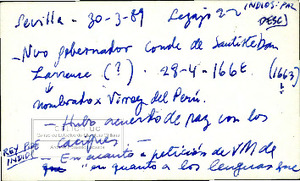 Sevilla - 30-3-89 Legajo 2-
INDIOS-PAZ
DESC)
- Nvo gobernador conde de Santisteban
Larrense (?) . 28-4-1666 (1663)
nombrado a Virrey del Perú.
- Hubo acuerdo de paz con los
caciques -
REY PIDE
INDIOS
- En cuanto a petición de VM de
que "en quanto a los lenguas que